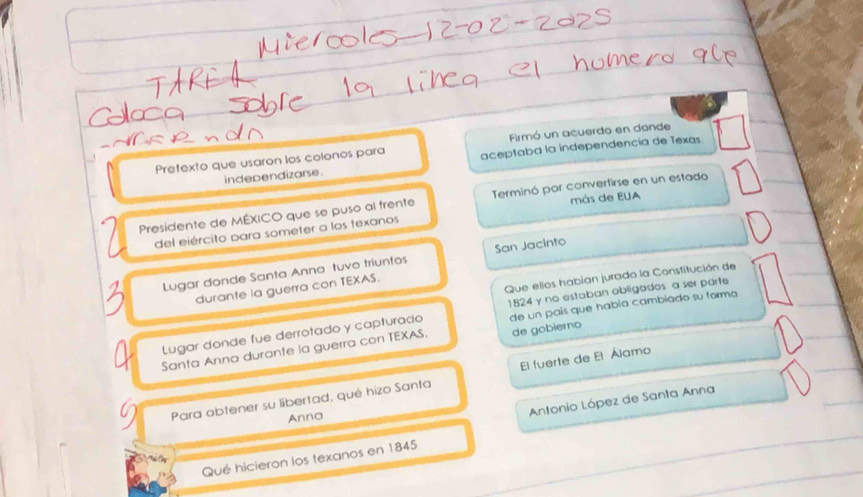 Miercoles-12-02-2025
TAREA
Coloca sobre la linea el numero que
1
Pretexto que usaron los colonos para
independizarse.
2
Presidente de MÉXICO que se puso al frente
del ejército para someter a los texanos
3
Lugar donde Santa Anna tuvo triunfos
durante la guerra con TEXAS.
4
Lugar donde fue derrotado y capturado
Santa Anna durante la guerra con TEXAS.
5
Para obtener su libertad, qué hizo Santa
Anna
Qué hicieron los texanos en 1845
Firmó un acuerdo en donde
aceptaba la independencia de Texas.
Terminó por convertirse en un estado
más de EUA
San Jacinto
Que ellos habían jurado la Constitución de
1824 y no estaban obligados a ser parte
de un país que había cambiado su forma
de gobierno
El fuerte de El Álamo
Antonio López de Santa Anna